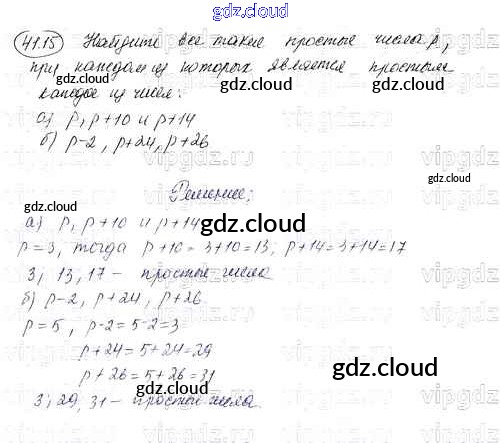 gdz.cloud
41.15 Найдите все такие простые числа p,
gdz.cloud
при каждом из которых является простым
gdz.cloud
каждое из чисел:
а) p, p+10 и p+14
б) p-2, p+24, p+26
vipgdz.ru
gdz.cloud
Решение:
а) p, p+10 и p+14
gdz.cloud
p=3, тогда p+10=3+10=13, p+14=3+14=17
3, 13, 17 - простые числа
gdz.cloud
б) p-2, p+24, p+26
p=5, p-2=5-2=3
p+24=5+24=29
gdz.cloud
p+26=5+26=31
gdz.cloud
3, 29, 31 - простые числа.